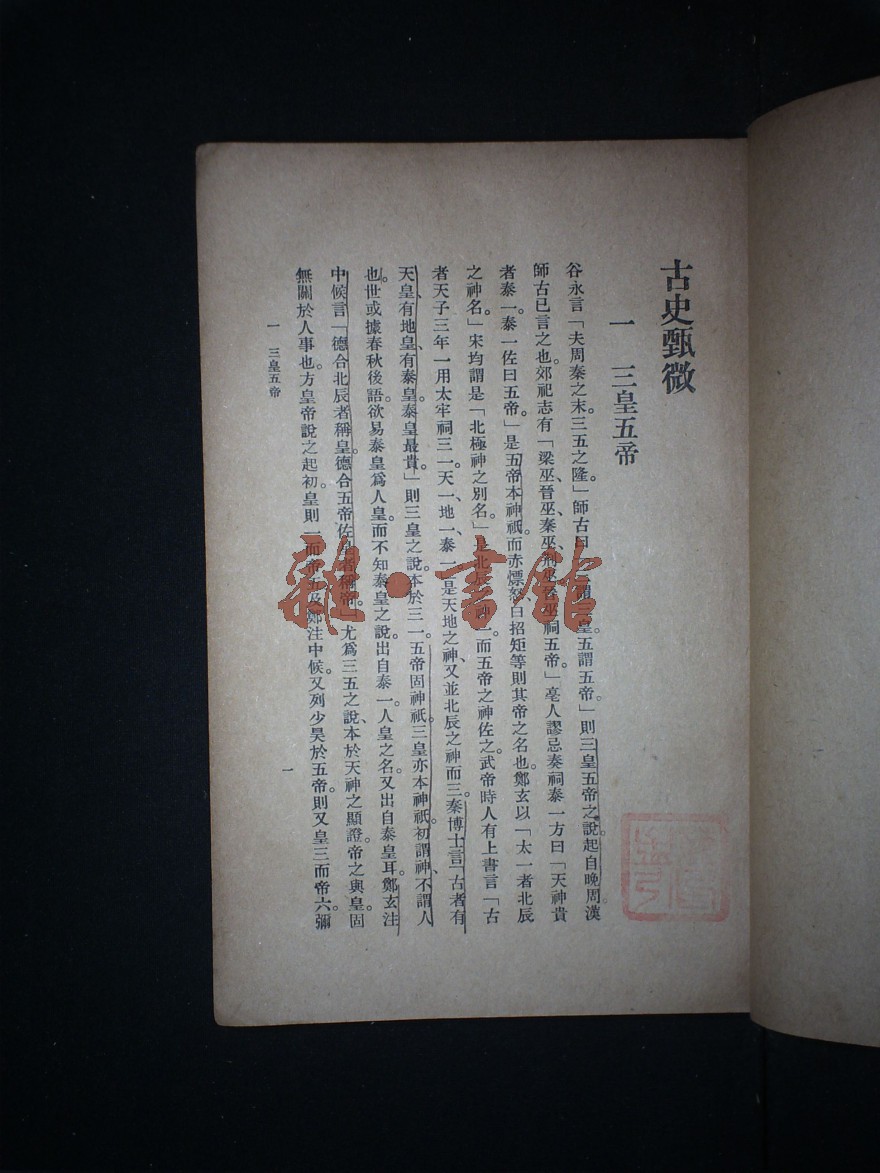 古史甄微
一 三皇五帝
谷永言「夫周秦之末三五之隆。」師古曰「謂三皇五謂五帝。」則三皇五帝之說起自晚周漢
師古已言之也。郊祀志有「梁巫、晉巫、秦巫、荆巫、巫祠五帝。」亳人謬忌奏祠泰一方曰「天神貴
者泰一。泰一佐曰五帝。」是五帝本神祇。而赤熛怒、白招矩等則其帝之名也。鄭玄以「太一者北辰
之神名。」宋均謂是「北極神之別名。」是北辰神一而五帝之神佐之。武帝時人有上書言「古
者天子三年一用太牢祠三一。天一、地一、泰一。」是天地之神、又並北辰之神而三。秦博士言「古者有
天皇、有地皇、有泰皇。泰皇最貴。」則三皇之說、本於三一。五帝固神祇、三皇亦本神祇。初謂神、不謂人
也。世或據春秋後語。欲易泰皇爲人皇。而不知泰皇之說。出自泰一。人皇之名。又出自泰皇耳。鄭玄注
中候言「德合北辰者稱皇。德合五帝佐者稱帝。」尤爲三五之說、本於天神之顯證。帝之與皇。固
無關於人事也。方皇帝說之起。初皇則一而帝五。及鄭注中候。又列少昊於五帝。則又皇三而帝六。彌
一 三皇五帝
一
雜·書館